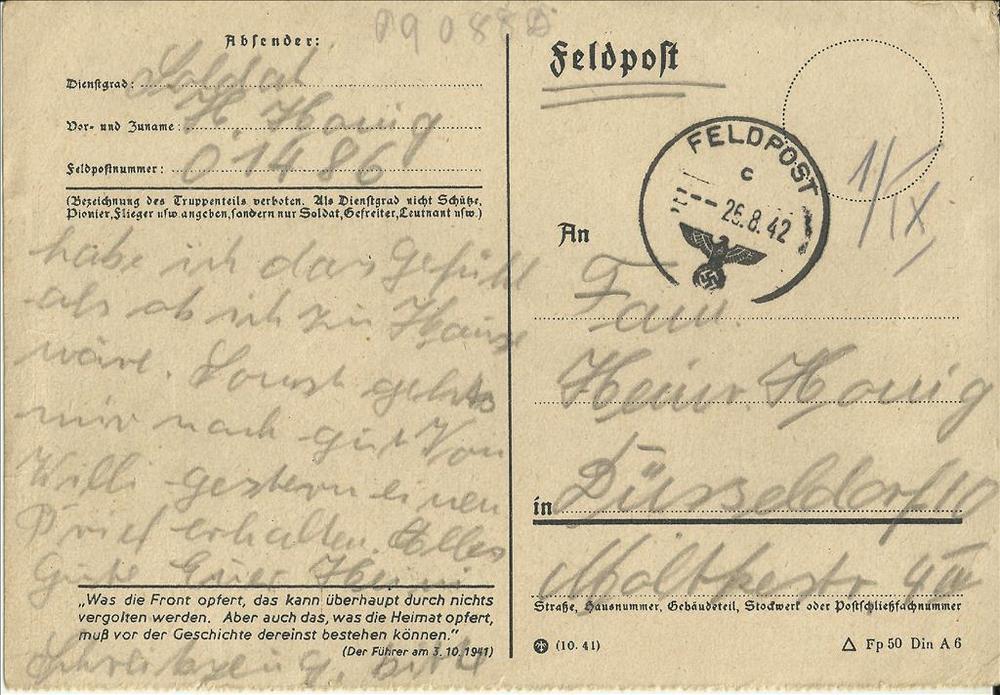 09088D
Absender:
Dienstgrad: Soldat
Vor- und Zuname: H. Honig
Feldpostnummer: 01486
(Bezeichnung des Truppenteils verboten. Als Dienstgrad nicht Schütze,
Pionier, Flieger usw. angeben, sondern nur Soldat, Gefreiter, Leutnant usw.)
habe ich das Gefühl
als ob ich zu Hause
wäre. Sonst gehts
mir noch gut. Von
Willi gestern einen
Brief erhalten. Alles
Gute Euer Heini
„Was die Front opfert, das kann überhaupt durch nichts
vergolten werden. Aber auch das, was die Heimat opfert,
muß vor der Geschichte dereinst bestehen können.“
(Der Führer am 3.10.1941)
Schreibzeug
Feldpost
FELDPOST
c
26.8.42
1/IX.
An
Fam.
Heinr. Honig
in Düsseldorf 10
Moltkestr. 4 III
Straße, Hausnummer, Gebäudeteil, Stockwerk oder Postschließfachnummer
(10.41)
Fp 50 Din A 6